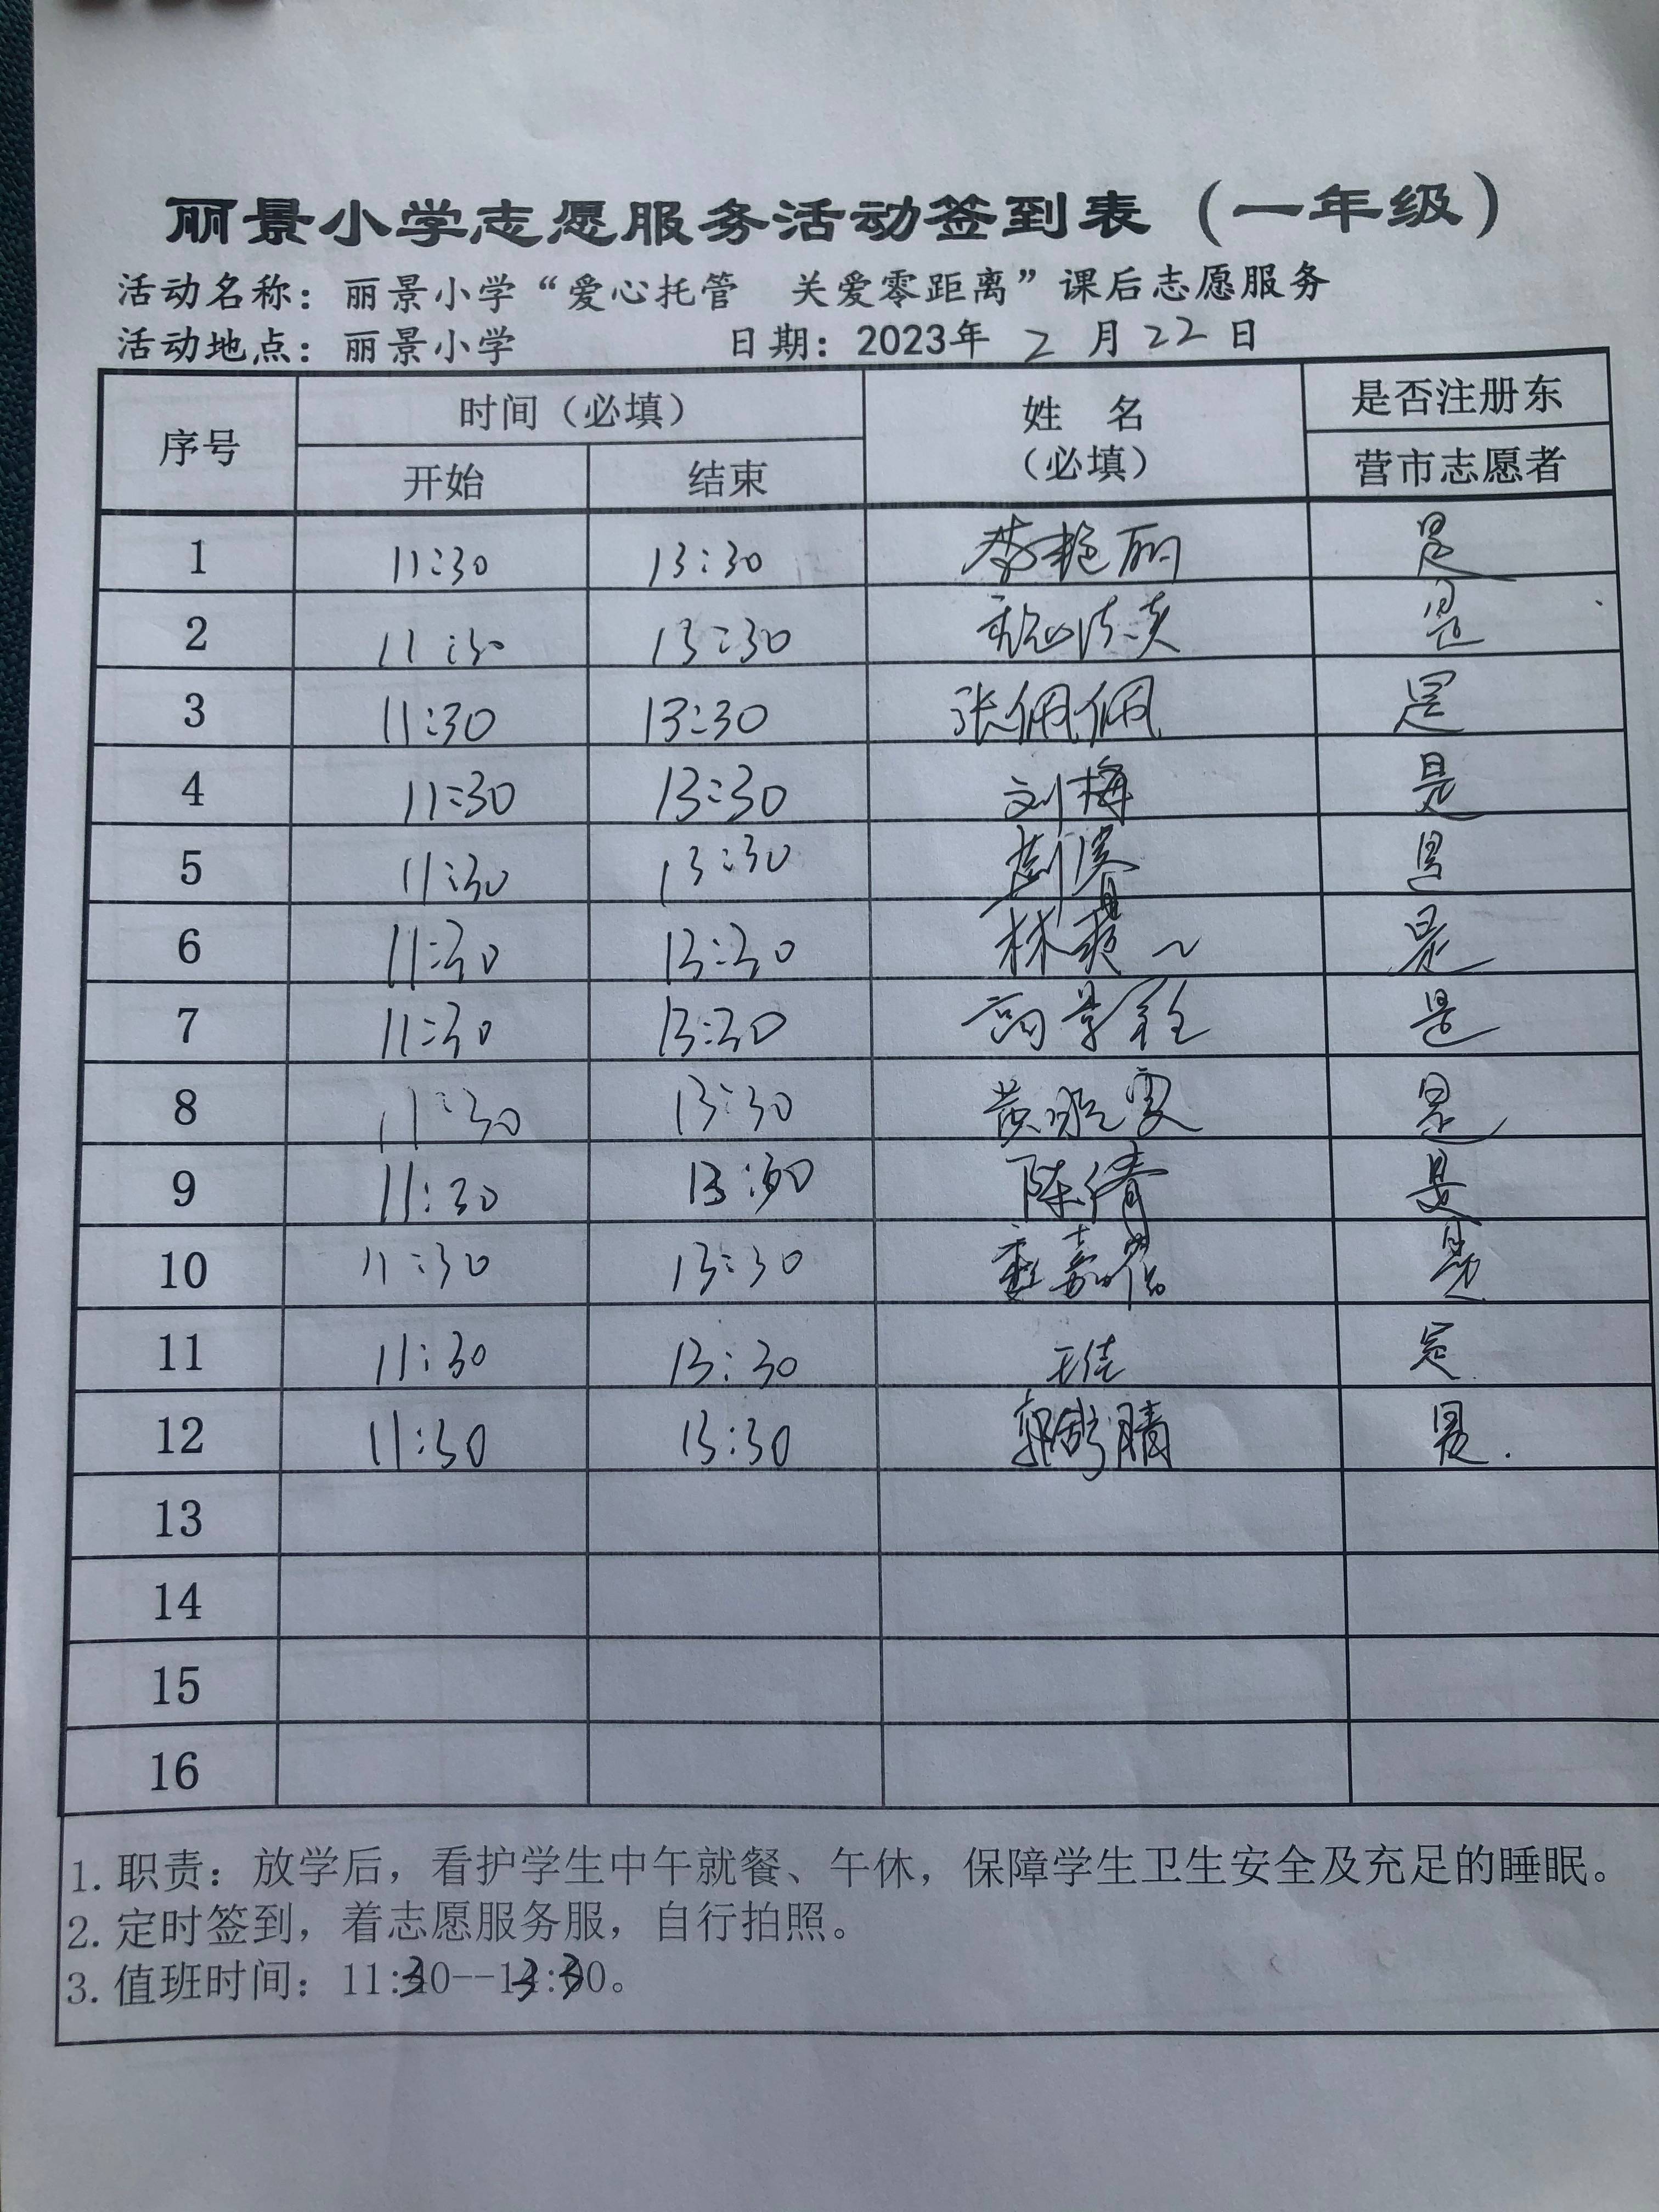 丽景小学志愿服务活动签到表（一年级）
活动名称：丽景小学“爱心托管 关爱零距离”课后志愿服务
活动地点：丽景小学 日期：2023年 2 月 22 日
序号 时间（必填） 姓 名（必填） 是否注册东营市志愿者
开始 结束
1 11:30 13:30 李艳丽 是
2 11:30 13:30 是
3 11:30 13:30 张佩佩 是
4 11:30 13:30 刘梅 是
5 11:30 13:30 是
6 11:30 13:30 林 是
7 11:30 13:30 是
8 11:30 13:30 黄 雯 是
9 11:30 13:30 陈倩 是
10 11:30 13:30 嘉 是
11 11:30 13:30 王佳 是
12 11:30 13:30 郭 晴 是.
13
14
15
16
1. 职责：放学后，看护学生中午就餐、午休，保障学生卫生安全及充足的睡眠。
2. 定时签到，着志愿服务服，自行拍照。
3. 值班时间：11:30--13:30。